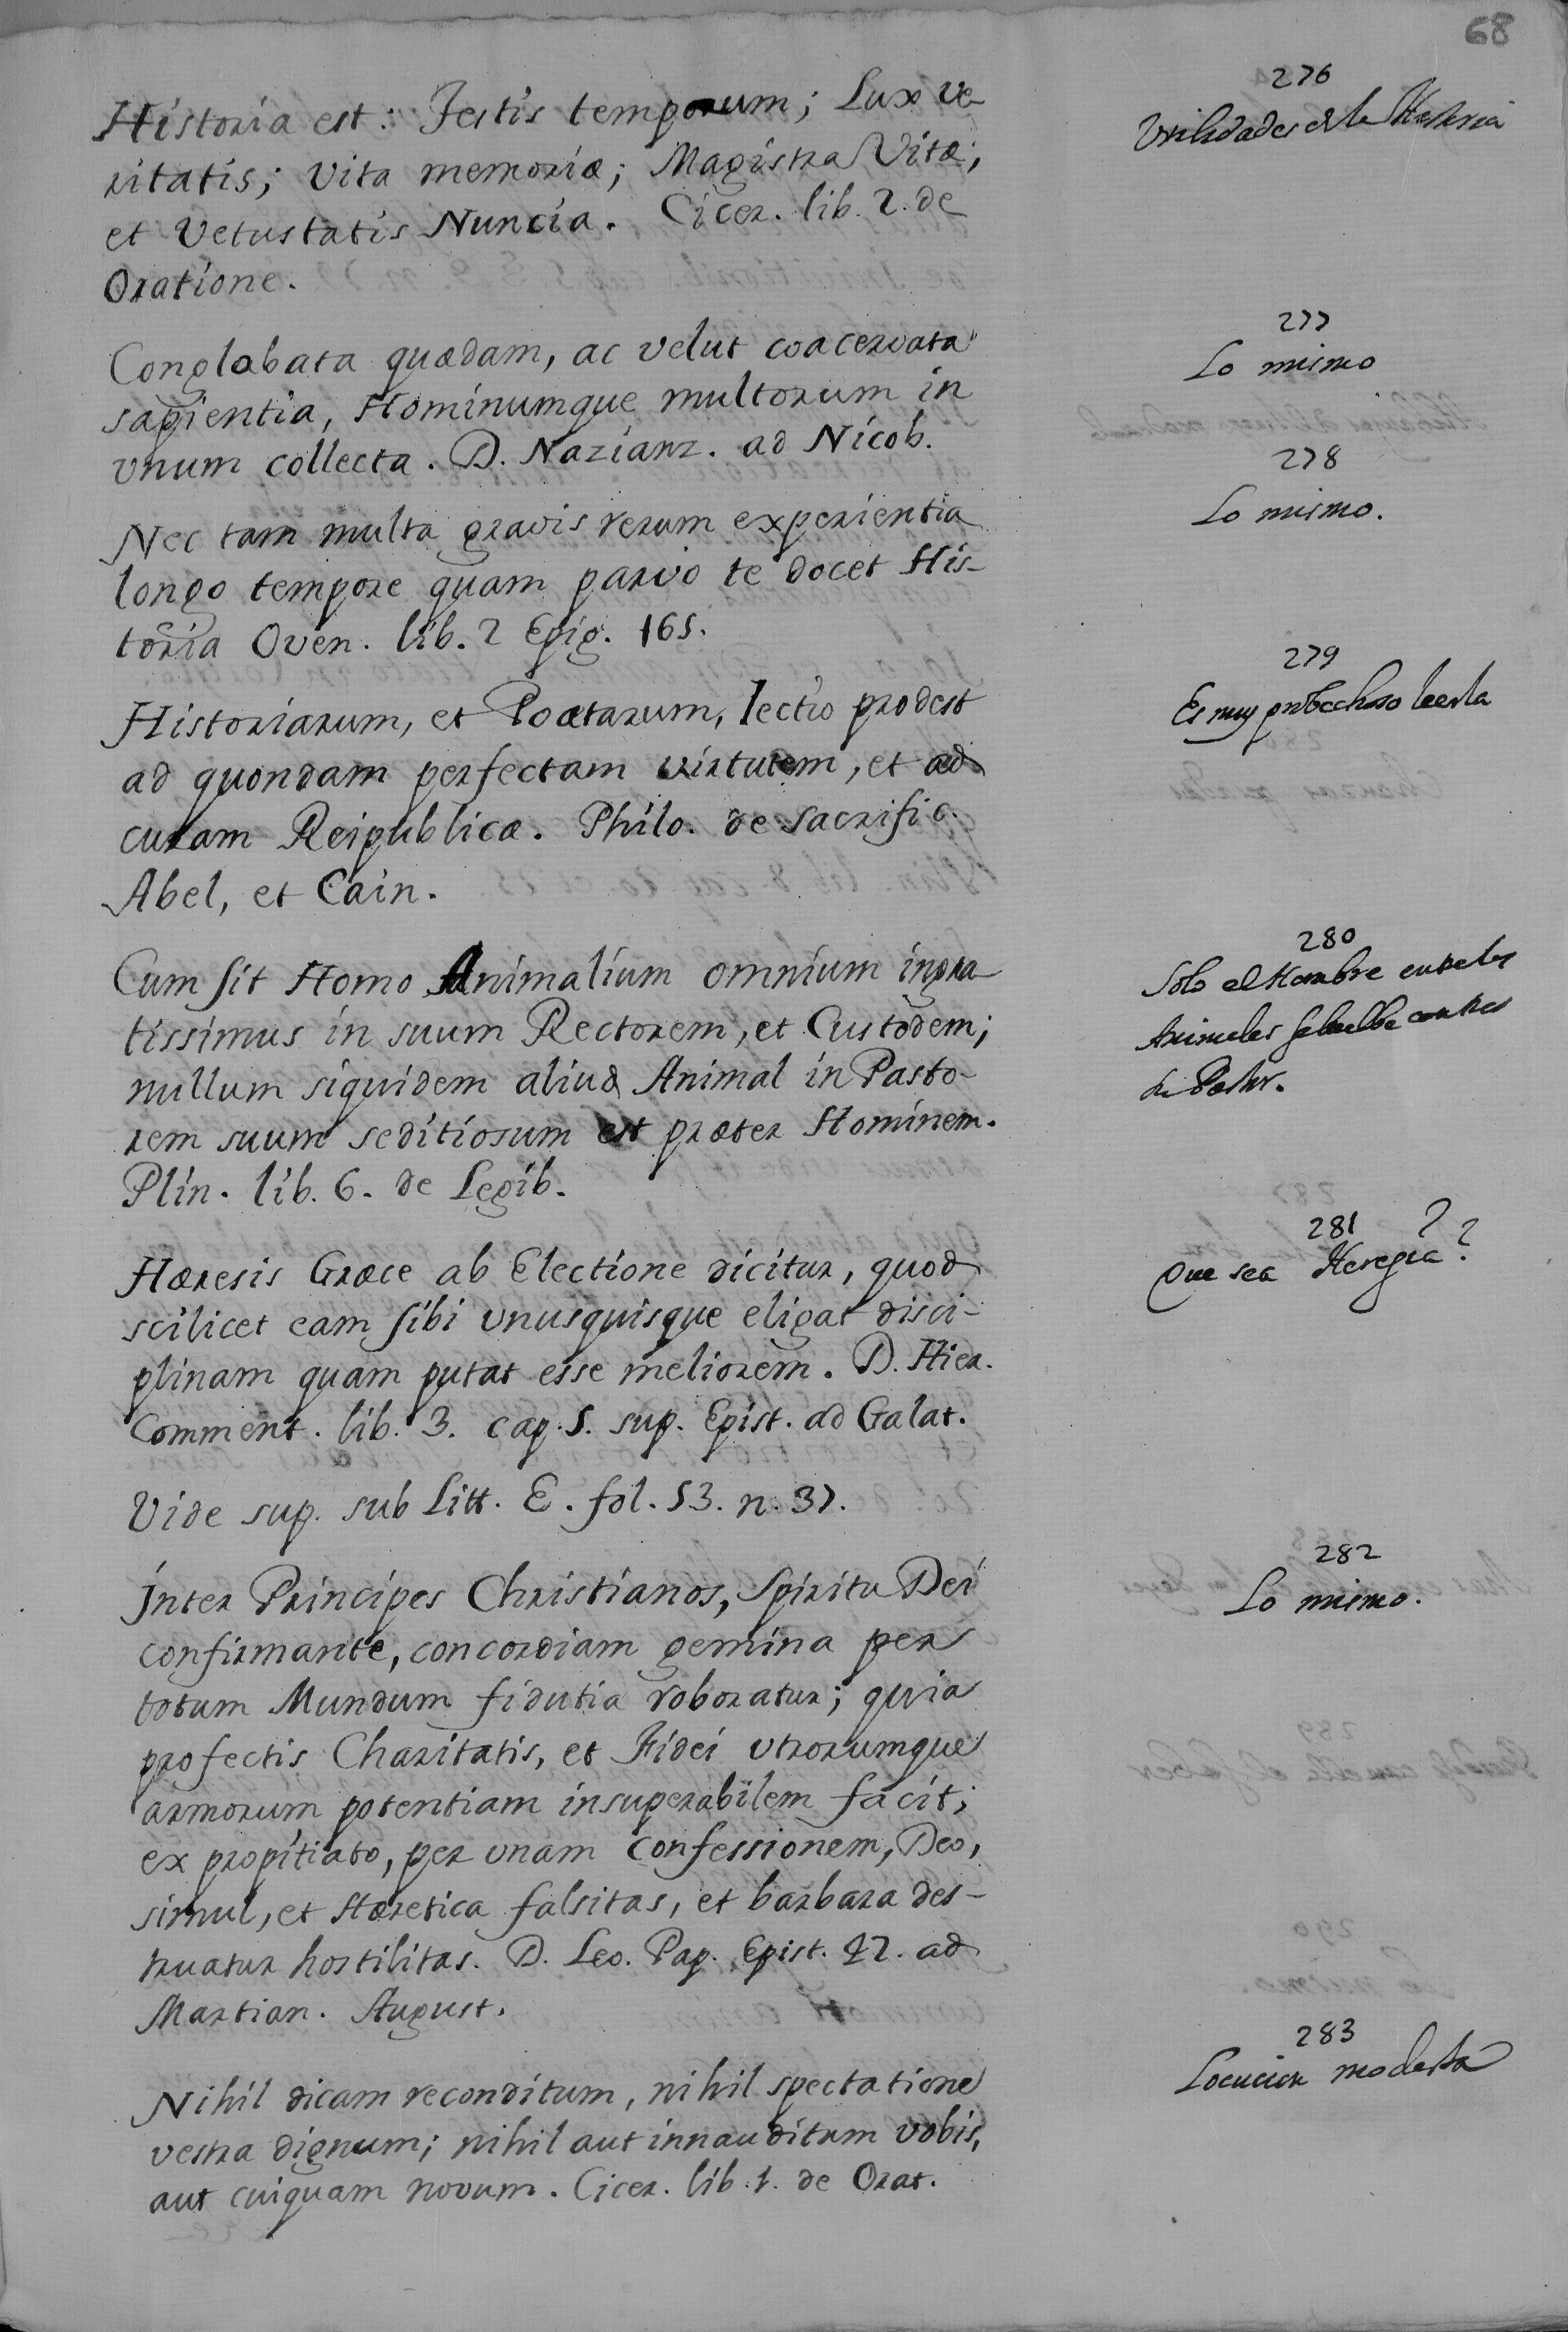 68
276
Utilidades de la Historia
Historia est: Testis temporum; Lux Ve-
ritatis; Vita memoriæ; Magistra Vitæ;
et Vetustatis Nuncia. Cicer. lib. 2. de
Oratione.
277
Lo mismo
Conglobata quædam, ac velut coacervata
sapientia, Hominumque multorum in
vnum collecta. D. Nazianz. ad Nicob.
278
Lo mismo.
Nec tam multa gravis rerum experientia
longo tempore quam parvo te docet His-
toria Oven. lib. 2 Epig. 165.
279
Es muy probechoso leerla
Historiarum, et Poetarum, lectio prodest
ad quondam perfectam virtutem, et ad
curam Reipublicæ. Philo. de Sacrific.
Abel, et Cain.
280
Solo el Hombre entre los
Animales se buelbe contra
su Pastor.
Cum sit Homo Animalium omnium ingra
tissimus in suum Rectorem, et Custodem;
nullum siquidem aliud Animal in Pasto-
rem suum seditiosum est præter Hominem.
Plin. lib. 6. de Legib.
281
Que sea Heregia?
Hæresis Græce ab Electione dicitur, quod
scilicet eam sibi vnusquisque eligat disci-
plinam quam putat esse meliorem. D. Hier.
Comment. lib. 3. cap. 5. sup. Epist. ad Galat.
Vide sup. sub Litt. E. fol. 53. n. 37.
282
Lo mismo.
Inter Principes Christianos, Spiritu Dei
confirmante, concordiam gemina per
totum Mundum fidutia roboratur; quia
profectis Charitatis, et Fidei vtrorumque
armorum potentiam insuperabilem facit;
ex propitiato, per vnam confessionem, Deo,
simul, et Hæretica falsitas, et barbara des-
truatur hostilitas. D. Leo. Pap. Epist. 42. ad
Martian. August.
283
Locucion modesta
Nihil dicam reconditum, nihil spectatione
vestra dignum; nihil aut innauditum vobis,
aut cuiquam novum. Cicer. lib. 1. de Orat.